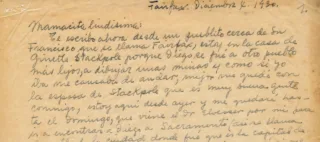 Fairfax. Diciembre 4. 1930.
Mamacita lindisima:
Te escribo ahora desde un pueblito cerca de San
Francisco que se llama Fairfax, estoy en la casa de
Ginette Stackpole porque Diego se fué a otro pueblo
más lejos, a dibujar unas minas y como yo
iba me cansaba de andar, mejor me quedé con
la esposa de Stackpole que es muy buena gente
conmigo, estoy aquí desde ayer y me quedaré has-
ta el Domingo, que viene el Dr. Eloesser por mi para
ir a encontrar a Diego a Sacramento (así se llama
la ciudad donde fué que es la capital de